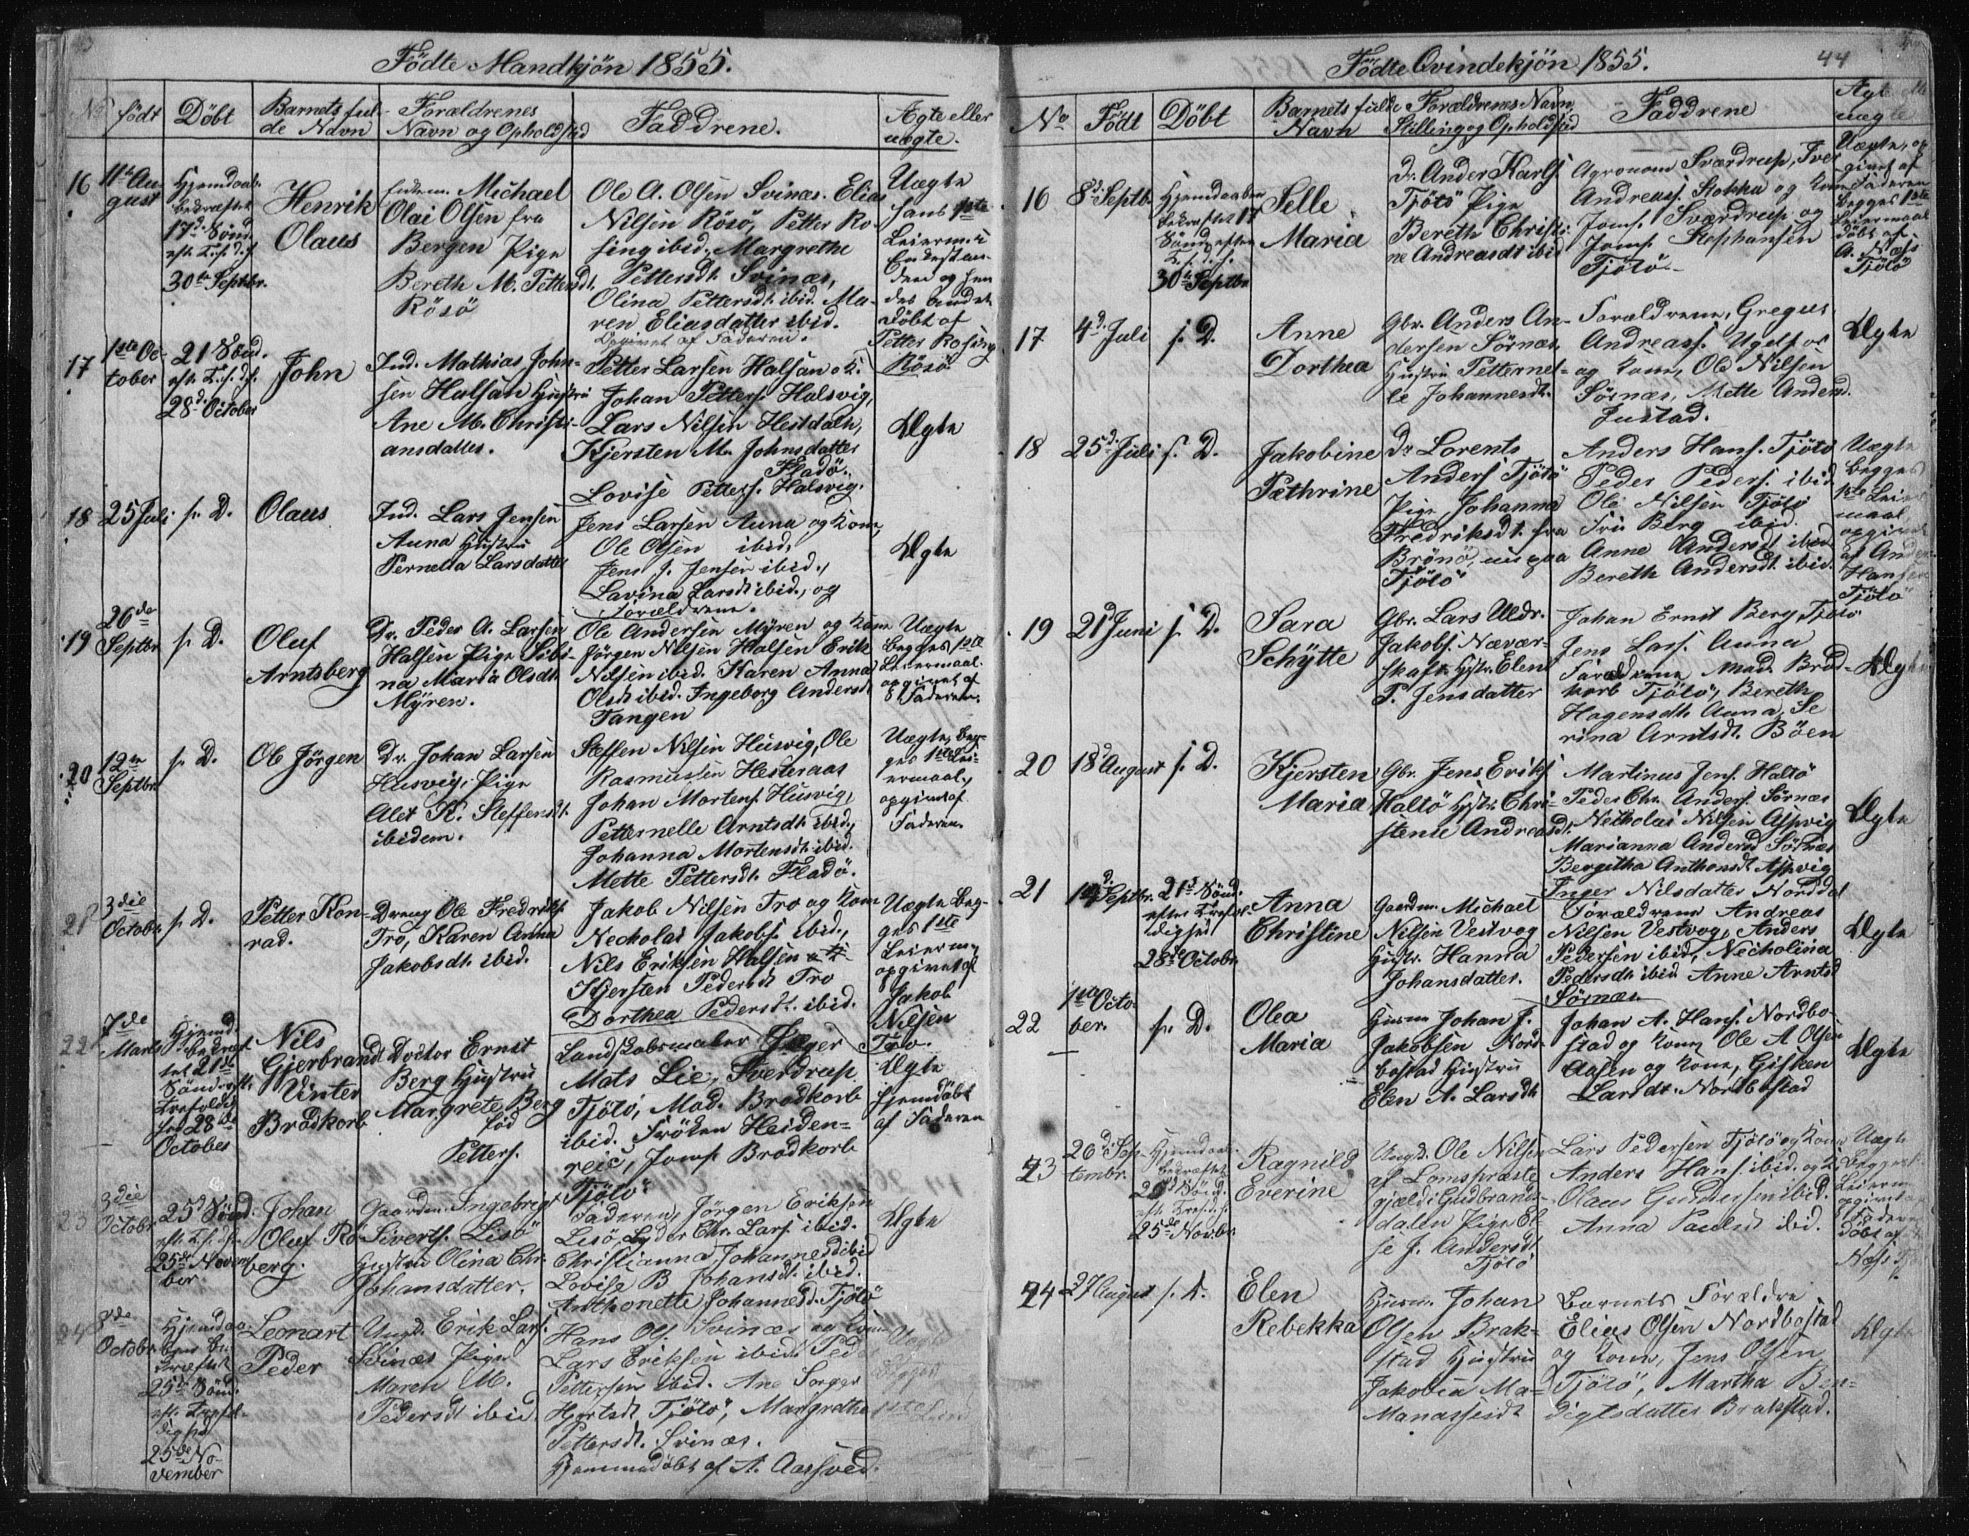 Födte Mandkjön 1855.
No
födt
Döbt
Barnets ful-
de Navn
Forældrenes
Navn og Opholdsted
Faddrene.
Ægte eller
uægte.
16
11te Au-
gust
Hjemdaab
bekræftet
17d Sönd.
eft. T.f.d.f.
30te Septbr.
Henrik
Olaus
Michael
Olai Olsen fra
Bergen Pige
Bereth M. Pettersdt.
Rösö
Ole A. Olsen Svinæs. Elias
Nilsen Rösö, Petter Ro-
sing ibid. Margrethe
Pettersdt. Svinæs,
Olina Pettersdt. ibid. Ma-
ren Eliasdatter ibid.
Opgivet af Faderen.
Uægte
hans 1ste
Leierm. i
Enkestan-
den og hen
des andet
Döbt af
Petter Rosing
Rösö
17
1ste Oc-
tober
21 Sönd.
eft. T.f.d.f.
28d October
John
Ind. Mathias John-
sen Halsan Hustru
Ane M. Christi-
ansdatter.
Petter Larsen Halsan o. K.
Johan Petters. Halsvig,
Lars Nilsen Hestdalh,
Kjersten M. Johnsdatter
Fladö.
Lovise Petters. Halsvig.
Ægte
18
25 Juli
s. D.
Olaus
Ind. Lars Jensen
Auna Hustru
Pernella Larsdatter
Jens Larsen Auna og Kone,
Ole Olsen ibid,
Jens J. Jensen ibid.,
Lavina Larsdt ibid., og
Forældrene.
Ægte
19
26de
Septbr
s. D.
Oluf
Arntsberg
Dr. Peder A. Larsen
Halsen Pige Sibi-
na Maria Olsdt.
Mÿren.
Ole Andersen Mÿren og Kone
Jörgen Nilsen Halsen Erik
Nilsen ibid. Karen Anna
Olsdt ibid. Ingeborg Andersdt
Tangen
Uægte
Begges 1ste
Leiermaal.
opgivet af
Faderen.
20
12te
Septbr
s. D.
Ole Jörgen
Dr. Johan Larsen
Husvig, Pige
Alet K. Steffensdt.
ibidem.
Steffen Nilsen Husvig, Ole
Rasmussen Hesteraas
Johan Mortens. Husvig,
Petternelle Arntsdt. ibid.,
Johanna Mortensdt. ibid.
Mette Pettersdt. Fladö.
Uægte, Beg-
ges 1ste Lei-
ermaal,
opgivet af
Faderen
21
3die
Octobr
s. D.
Petter Kon-
rad.
Dreng Ole Fredriks.
Tro, Karen Anna
Jakobsdt. ibid.
Jakob Nilsen Tro og Kone
Necholai Jakobs. ibid.,
Nils Eriksen Halsen
Kjersten Pedersdt Tro
Dorthea Pedersdt. ibid.
Uægte Beg-
ges 1ste
Leierm.
opgivet af
Jakob
Nilsen
Tro.
22
7de
Marts
Hjemd.
bekræf-
tet 21de
Sönd. eft.
Trefoldig-
hed 28de
October
Nils
Gjerbrandt
Vinter
Brodkorb
Doctor Ernst
Berg Hustru
Margrete Berg
föd
Petters.
Landskabsmaler Jæger
Mats Lie, Sverdrup
Tjötö, Mad. Brodkorb
ibid. Fröken Heiden-
reic, Jomf. Brodkorb
Tjötö
Ægte
hjemdöbt
af Faderen
23
3die
Octobr
25d Sönd.
eft. T.f.d.f.
25de Novem
ber
Johan
Oluf Ro-
berg.
Gaardm. Ingebregt
Sivertsen Lisö
Hustru Olina Chr.
Johansdatter.
Faderen, Jörgen Eriksen
Lisö, Lyder Chr. Lars. ibid.
Christianna Johannesd ibid
Lovise B Johansdt. ibid.
Anthonette Johannesd. Tjötö
Ægte
24
Octobr
Hjemdaa-
ben be-
kræftet
25de Sönd.
eft. Trefol-
dighed
25de No-
vember
Leonart
Peder
Ungk. Erik Lars.
Svinæs Pige
Maren M.
Pedersdt ibid.
Hans Ols. Svinæs og Kone
Lars Eriksen ibid. Peder
Pettersen ibid. Ane Sorger
Hjortsdt. Tjötö, Margrethe
Pettersdt. Svinæs.
Hjemmedöbt af A. Aasved.
Uægte
Begges
1ste
Leierm.
Födte Qvindekjön 1855.
44
No
Födt
Döbt
Barnets fulde
Navn
Forældrenes Navn,
Stilling og Opholdsted
Faddrene
Ægte eller
uægte
16
8d Septbr.
Hjemdaaben
bekræftet 17
Sönd efter
T.f.d.f.
30te Septbr
Selle
Maria
Dr. Ander Karls.
Tjötö Pige
Bereth Christi-
ne Andreasdt ibid
Agronom Sværdrup, Iver
Andreass. Stokka og Kone
Jomf. Sværdrup og
Jomf. Stephansen
Tjötö
Uægte, op
givet af
Faderen
Begges 1ste
Leiermaal
döbt af
A. Næss
Tjötö
17
4d Juli
s. D.
Anne
Dorthea
Gbr. Anders An-
dersen Sörnæs
Hustru Petternel-
le Johannesdt.
Forældrene, Gregus
Andreass. Ugelfos
og Kone, Ole Nilsen
Sörnæs, Mette Andersd.
Justad.
Ægte
18
25d Juli
s. D.
Jakobine
Pæthrine
Dr Lorents
Anders. Tjötö
Pige Johanna
Fredriksdt. fra
Brönö, nu paa
Tjötö
Anders Hans. Tjötö
Peder Peders. ibid
Ole Nilsen Tjötö
Fru Berg ibid.
Anne Andersdt ibid
Bereth Andersdt. ibid.
Uægte
Begges
1ste Leier
maal
opgivet
af Anders
Hansen
Tjötö
19
21d Juni
s. D.
Sara
Schÿtte
Gbr. Lars Uldr.
Jakobs. Nævær-
skaft Hstr. Elen
P. Jensdatter
Johan Ernst Berg Tjötö
Jens Lars. Auna
Forældrene Mad. Brod-
korb Tjötö, Bereth
Hagensdt. Auna, Se
rina Arntsdt. Böen
Ægte
20
18d August
s. D.
Kjersten
Maria
Gbr. Jens Eriks.
Haltö Hstr. Chri-
stene Andreasdt.
Martinus Jens. Haltö
Peder Chr. Anders. Sörnæs
Nicholai Nilsen Aspvig
Marianna Andersd Sörnæs
Bergitha Anthonsdt. Aspvig
Inger Nilsdatter Norddal
Ægte
21
14d Septbr.
21d Sönd.
efter Trefol-
dighed
28de Octobr.
Anna
Christine
Gaardm. Michael
Nilsen Vestvog
Hustr. Hanna
Johansdatter.
Forældrene Andreas
Nilsen Vestvog, Anders
Pedersen ibid, Necholina
Pedersdt ibid Anne Arntsd
Sörnæs
Ægte
22
1ste Octo-
ber.
s. D.
Olea
Maria
Husm Johan J.
Jakobsen Nord-
bostad Hustru
Elen A. Larsdt.
Johan A. Hans. Nordbo-
stad og Kone Ole A Olsen
Aasen og Kone, Gisken
Larsdt. Nordbostad
Ægte
23
26d Sep-
tembr.
Hjemdaab
bekræftet
25d Sönd.
eft. Tref. d. f.
25de Novbr
Ragnild
Everine
Ungk. Ole Nilsen
af Lomspræste
gjeld i Gudbrands-
dalen Pige El-
se J. Andersdt.
Tjötö
Lars Pedersen Tjötö og Kone
Anders Hans. ibid. og K.
Olaus Gundersen ibid.
Anna Paulsd ibid.
Uægte
Begges
Leierm
opgivet af
Faderen
Döbt af
Næss
24
27 August
s. D.
Elen
Rebekka
Husm. Johan
Olsen Brak-
stad Hustru
Jakobia Ma-
Manassesdt
Barnets Forældre
Elias Olsen Nordbostad
og Kone, Jens Olsen
Tjötö, Martha Ben-
digtsdatter Brakstad.
Ægte